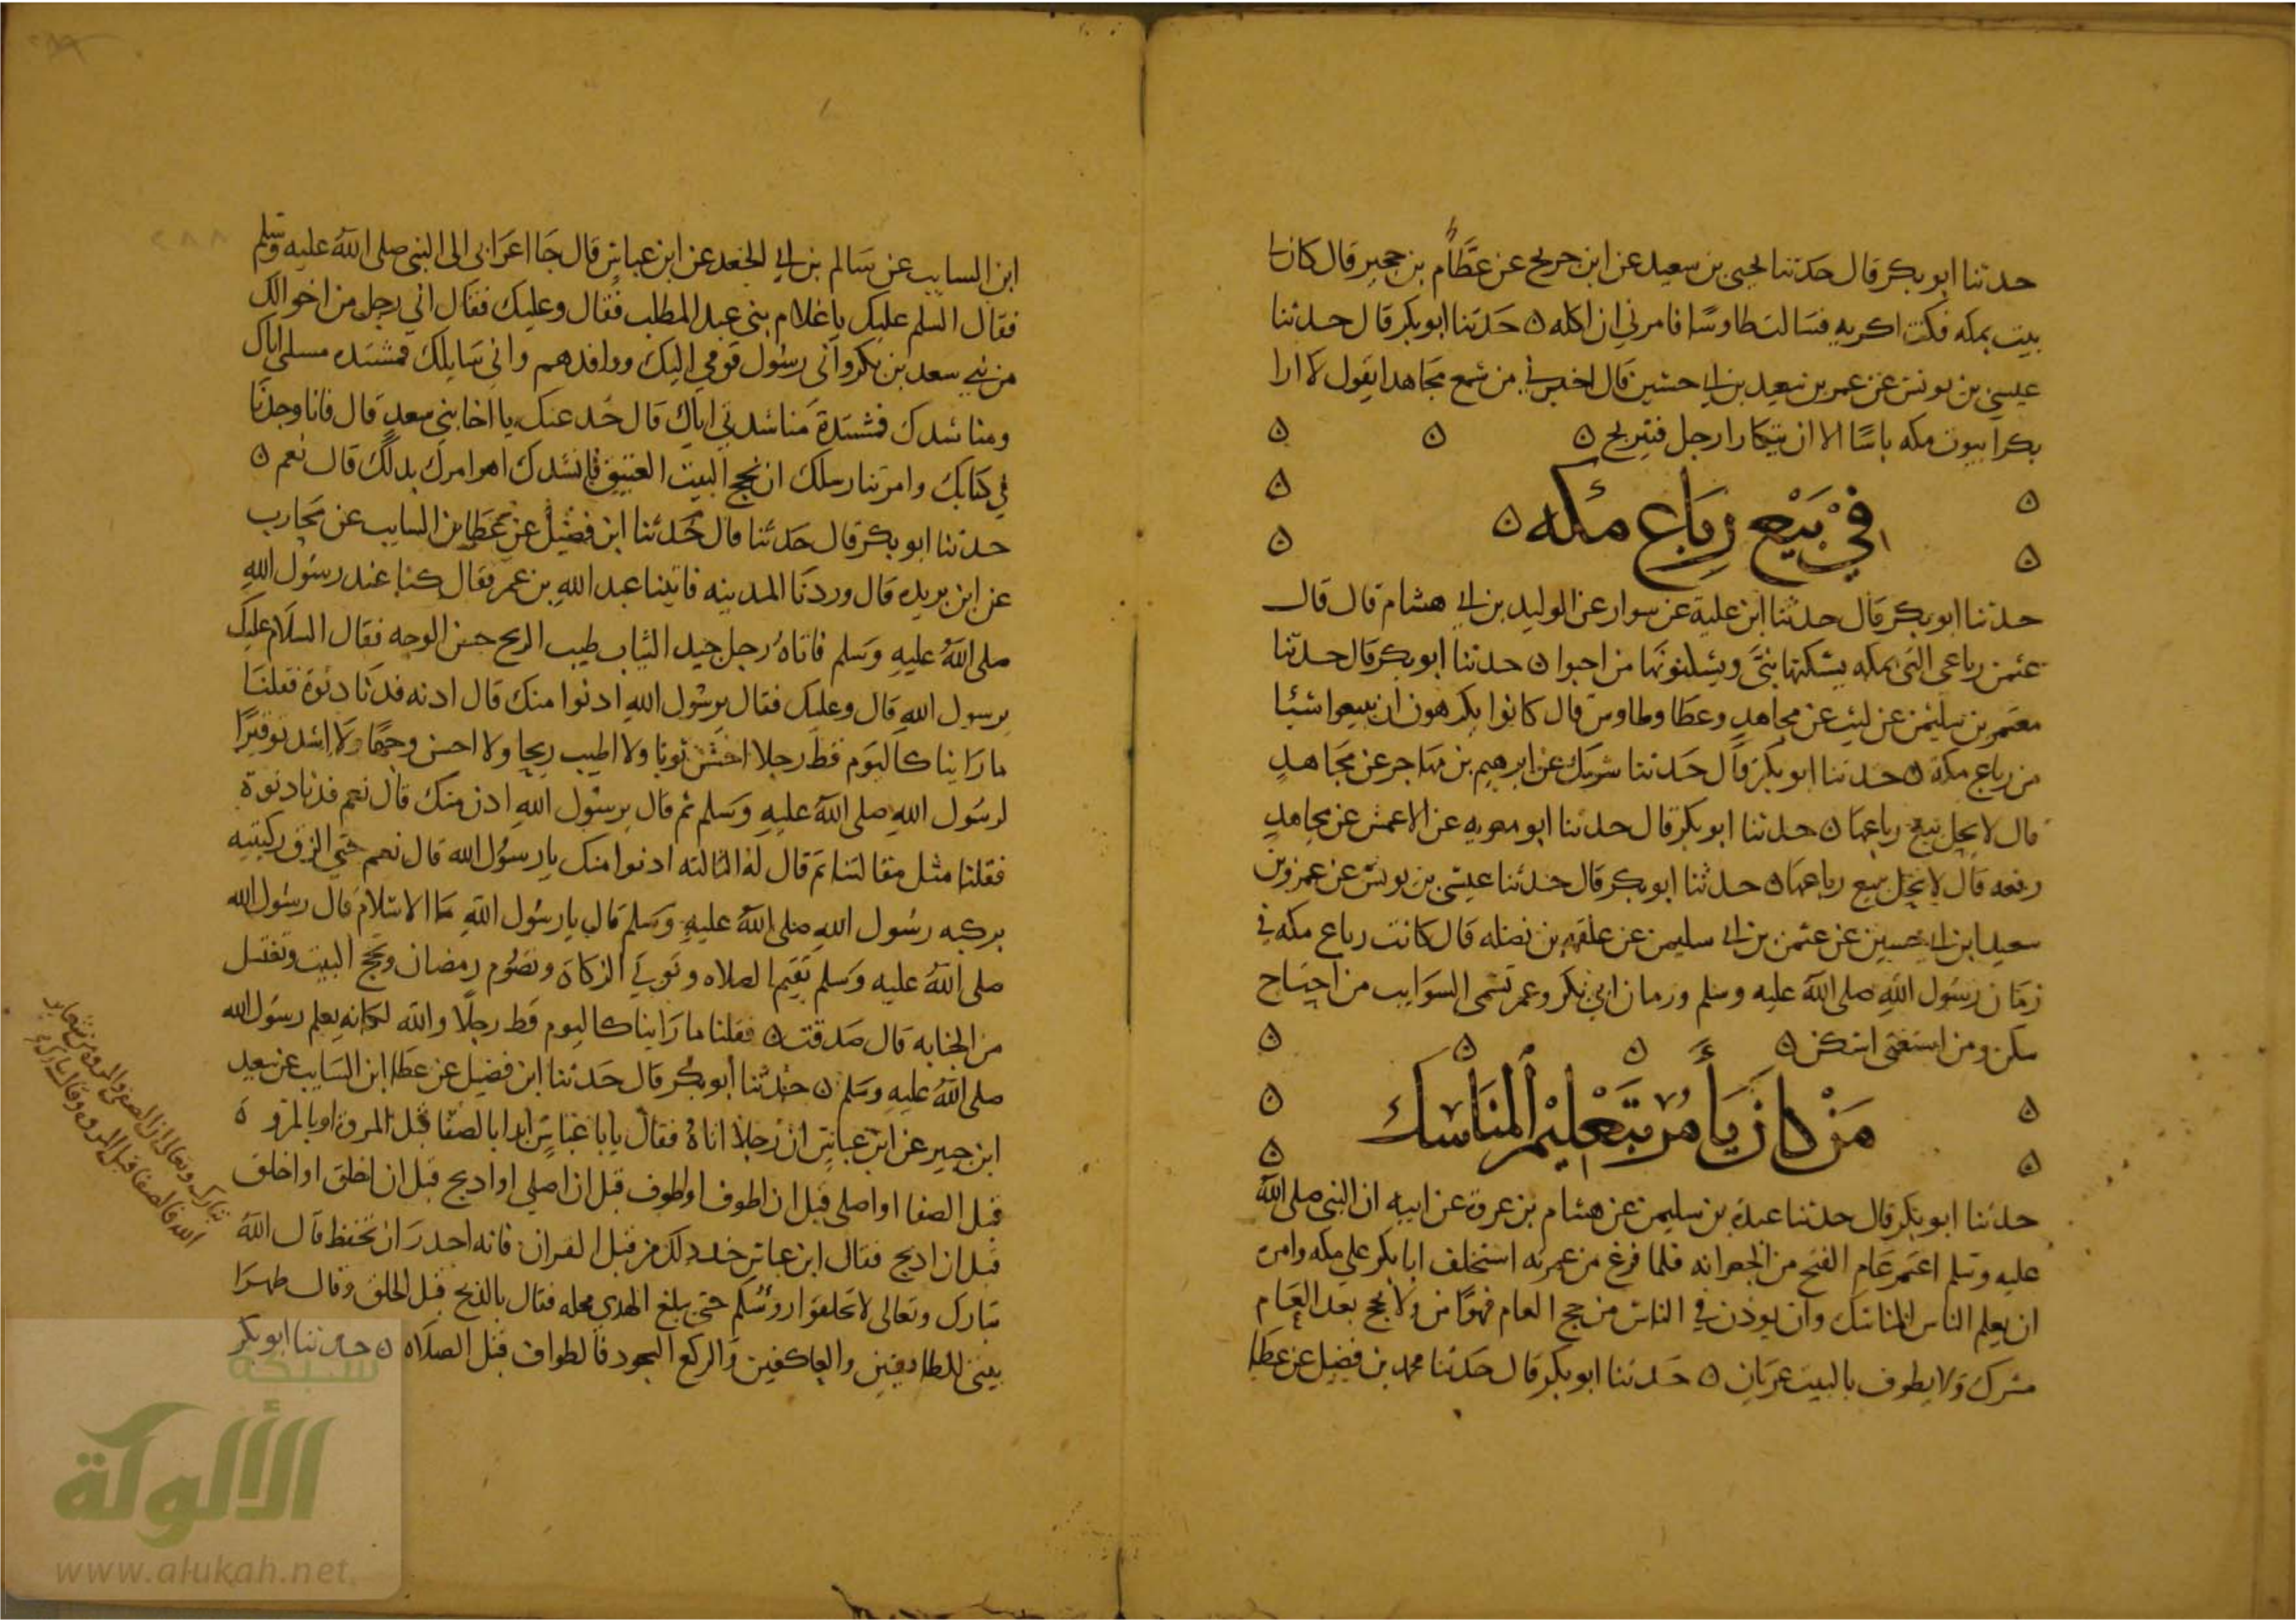 حدثنا ابو بكر قال حدثنا يحيى بن سعيد عن ابن جريج عن هشام بن حجير قال كان لي
بيت بمكه فكنت اكريه فسالت طاوسًا فامرني ان اكله ه حدثنا ابو بكر قال حدثنا
عيسى بن يونس عن عمر بن سعيد بن ابي حسين قال اخبرني من سمع مجاهدا يقول لا ارا
بكرا بيوت مكه باسًا الا ان يتكارا رجل فيربح ه ه ه
في بيع رباع مكه ه
حدثنا ابو بكر قال حدثنا ابن علية عن سوار عن الوليد بن ابي هشام قال قال
عثمن رباعي التي بمكه يسكنها بنيَّ ويسكنونها من احبوا ه حدثنا ابو بكر قال حدثنا
معتمر بن سليمن عن ليث عن مجاهد وعطا وطاوس قال كانوا يكرهون ان يبيعوا شيئا
من رباع مكة ه حدثنا ابو بكر قال حدثنا شريك عن ابرهيم بن مهاجر عن مجاهد
قال لا يحل بيع رباعها ه حدثنا ابو بكر قال حدثنا ابو معويه عن الاعمش عن مجاهد
رفعه قال لا يحل بيع رباعها ه حدثنا ابو بكر قال حدثنا عيسى بن يونس عن عمرو بن
سعيد ابن ابي حسين عن عثمن بن ابي سليمن عن علقمه بن نضله قال كانت رباع مكه في
زمان رسول الله صلى الله عليه وسلم وزمان ابي بكر وعمر تسمى السوايب من احتاج
سكن ومن استغنى اسكن ه ه ه ه
من كان يأمر بتعليم المناسك
حدثنا ابو بكر قال حدثنا عبدة بن سليمن عن هشام بن عروة عن ابيه ان النبي صلى الله
عليه وسلم اعتمر عام الفتح من الجعرانه فلما فرغ من عمرته استخلف ابا بكر على مكه وامره
ان يعلم الناس المناسك وان يوذن في الناس من حج العام فهو امن ولا يحج بعد العام
مشرك ولا يطوف بالبيت عريان ه حدثنا ابو بكر قال حدثنا محمد بن فضيل عن عطا
ابن السايب عن سالم بن ابي الجعد عن ابن عباس قال جا اعرابي الى النبي صلى الله عليه وسلم
فقال السلم عليك يا غلام بني عبد المطلب فقال وعليك فقال اني رجل من اخوالك
من بني سعد بن بكر واني رسول قومي اليك ووافدهم واني سايلك فمشتده مسلتي اياك
ومناشدك فمشتدة مناشدتي اياك قال خذ عنك يا اخا بني سعد قال فانا وجدنا
في كتابك وامرتنا رسلك ان نحج البيت العتيق فانشدك اهو امرك بذلك قال نعم ه
حدثنا ابو بكر قال حدثنا قال حدثنا ابن فضيل عن عطا بن السايب عن محارب
عن ابن بريده قال وردنا المدينه فاتينا عبد الله بن عمر فقال كنا عند رسول الله
صلى الله عليه وسلم فاتاه رجل جيد الثياب طيب الريح حسن الوجه فقال السلام عليك
يرسول الله قال وعليك فقال يرسول الله ادنوا منك قال ادنه فدنا دنوة فقلنا
ما راينا كاليوم قط رجلا احسن ثوبا ولا اطيب ريحا ولا احسن وجها ولا اشد توقيرًا
لرسول الله صلى الله عليه وسلم ثم قال يرسول الله ادن منك قال نعم فدنا دنوة
فقلنا مثل مقالتنا ثم قال له الثالثه ادنوا منك يا رسول الله قال نعم حتى الزق ركبتيه
بركبه رسول الله صلى الله عليه وسلم قال يا رسول الله ما الاسلام قال رسول الله
صلى الله عليه وسلم تقيم الصلاه وتوتي الزكاة وتصوم رمضان وتحج البيت وتغتسل
من الجنابه قال صدقت ه فقلنا ما راينا كاليوم قط رجلا والله لكانه يعلم رسول الله
صلى الله عليه وسلم ه حدثنا ابو بكر قال حدثنا ابن فضيل عن عطا ابن السايب عن سعيد
ابن جبير عن ابن عباس ان رجلا اتاه فقال يابا عباس ابدا بالصفا قبل المروة او بالمروه
قبل الصفا او اصلي قبل ان اطوف او اطوف قبل ان اصلي او اذبح قبل ان احلق او احلق
قبل ان اذبح فقال ابن عباس خذ ذلك من قبل القران فانه اجدر ان تحفظ قال الله
تبارك وتعالى لا تحلقوا روسكم حتى يبلغ الهدي محله فقال بالذبح قبل الحلق وقال طهرا
بيتي للطائفين والعاكفين والركع السجود فالطواف قبل الصلاه ه حدثنا ابو بكر
تبارك وتعالى ان الصفا والمروه من شعاير
الله فالصفا قبل المروه وقال تبارك
شبكة
الألوكة
www.alukah.net